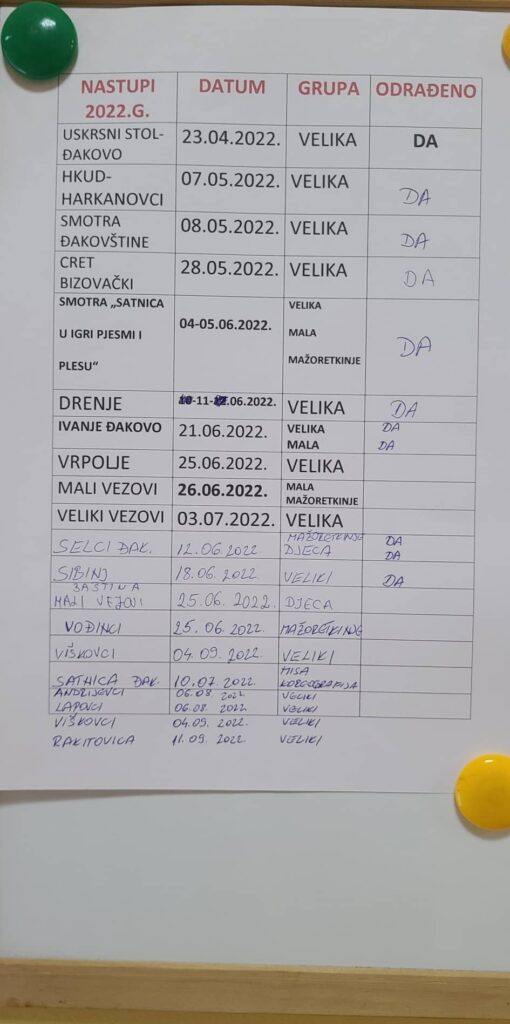 NASTUPI 2022.G. DATUM GRUPA ODRAĐENO
USKRSNI STOL-ĐAKOVO 23.04.2022. VELIKA DA
HKUD-HARKANOVCI 07.05.2022. VELIKA DA
SMOTRA ĐAKOVŠTINE 08.05.2022. VELIKA DA
CRET BIZOVAČKI 28.05.2022. VELIKA DA
SMOTRA „SATNICA U IGRI PJESMI I PLESU“ 04-05.06.2022. VELIKA MALA MAŽORETKINJE DA
DRENJE -11-.06.2022. VELIKA DA
IVANJE ĐAKOVO 21.06.2022. VELIKA MALA DA DA
VRPOLJE 25.06.2022. VELIKA
MALI VEZOVI 26.06.2022. MALA MAŽORETKINJE
VELIKI VEZOVI 03.07.2022. VELIKA
SELCI ĐAK. 12.06.2022. MAŽORETKINJE DJECA DA DA
SIBINJ 18.06.2022. VELIKI DA
BAŠTINA MALI VEZOVI 25.06.2022. DJECA
VOĐINCI 25.06.2022. MAŽORETKINJE
VIŠKOVCI 04.09.2022. VELIKI
SATNICA ĐAK. 10.07.2022. MISA KOREOGRAFIJA
ANDRIJEVCI 06.08 2022 VELIKI
LAPOVCI 06.08 2022 VELIKI
VIŠKOVCI 04.09. 2022 VELIKI
RAKITOVICA 11.09. 2022 VELIKI